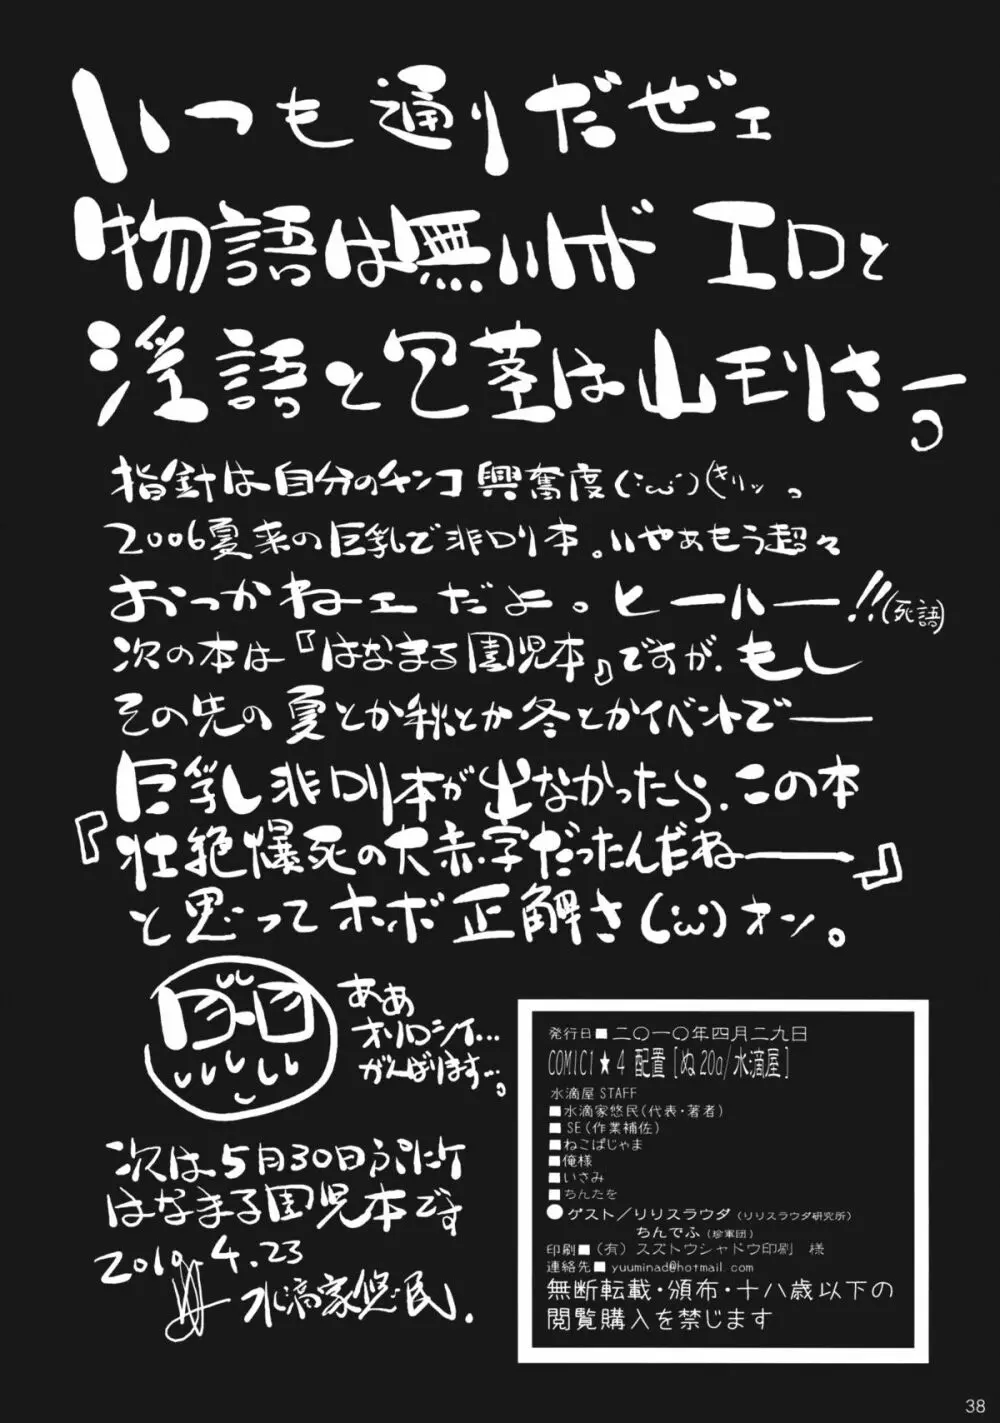 いつも通りだぜェ
物語は無いけど エロと
淫語と包茎は山モリさーっ
指針は自分のチンコ興奮度(;´ω`)(キリッ っ。
2006夏来の巨乳で非ロリ本。いやぁもう超々
おっかねェだよ。ヒーハー!!(死語)
次の本は『はなまる園児本』ですが、もし
その先の夏とか秋とか冬とかイベントでー
巨乳し非ロリ本が出なかったら、この本
『壮絶爆死の大赤字だったんだねー』
と思ってホボ正解さ(;´ω`)オン。
ああ
オソロシイ…
がんばります…。
次は5月30日ぷにケ
はなまる園児本です
2010.4.23
水滴家悠民.
発行日■二〇一〇年四月二九日
COMIC1★4 配置[ぬ20a/水滴屋]
水滴屋STAFF
■水滴家悠民(代表・著者)
■SE(作業補佐)
■ねこぱじゃま
■俺様
■いさみ
■ちんたを
●ゲスト/リリスラウダ(リリスラウダ研究所)
ちんでふ(珍軍団)
印刷■(有)スズトウシャドウ印刷 様
連絡先■yuuminad@hotmail.com
無断転載・頒布・十八歳以下の
閲覧購入を禁じます
38